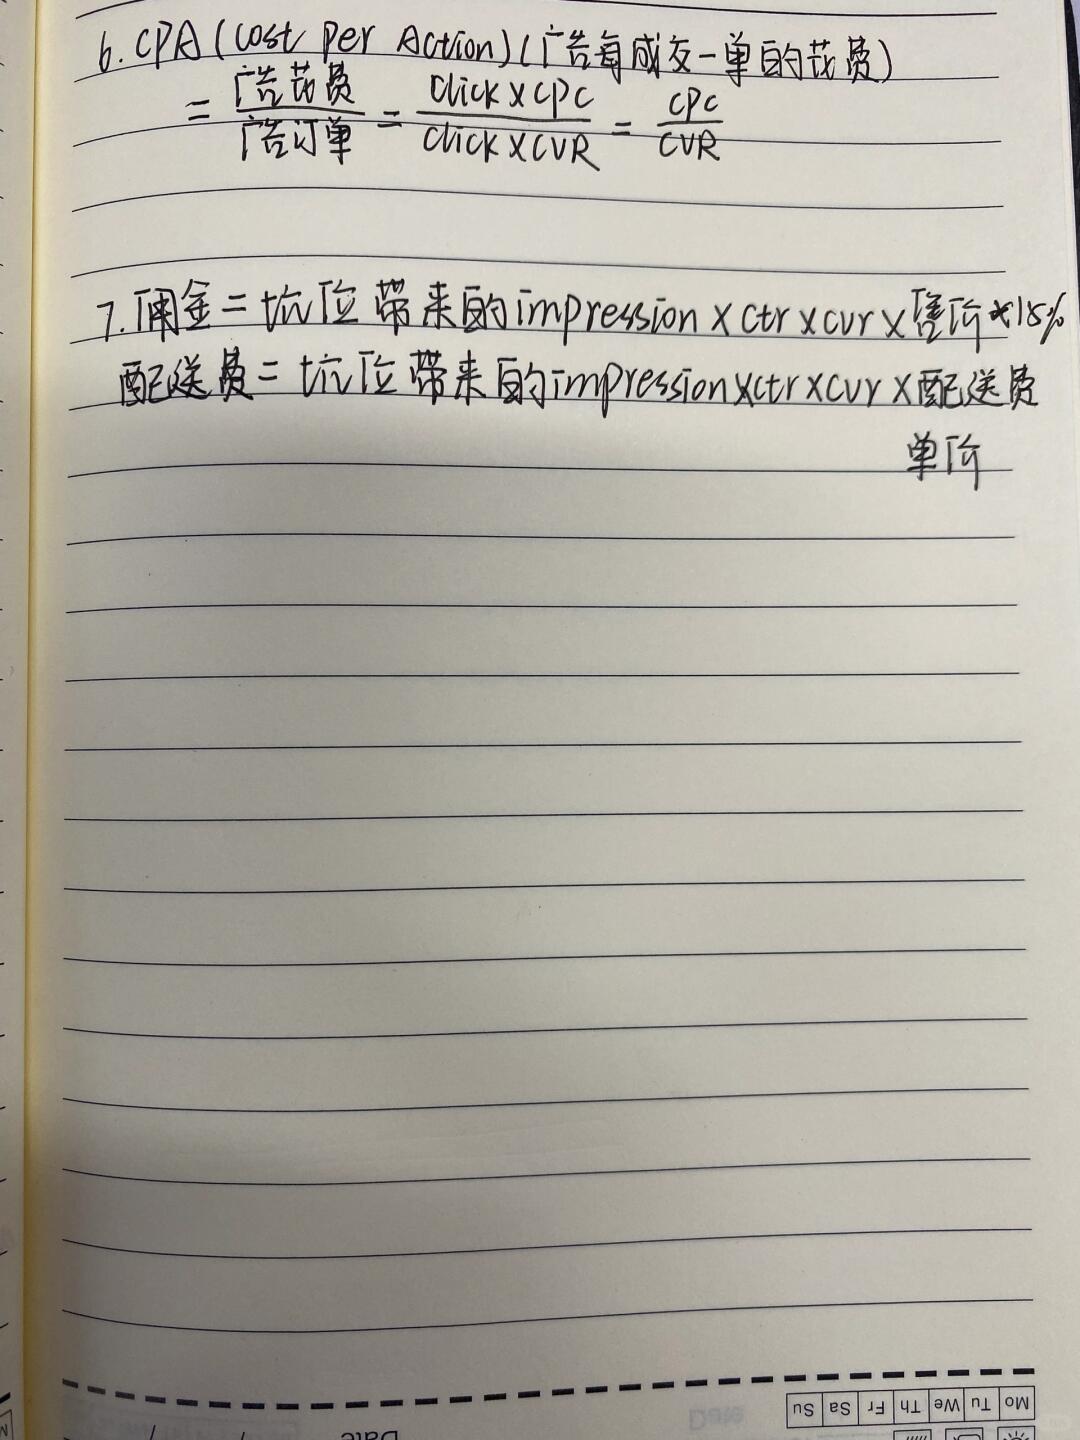 6. CPA (Cost Per Action) (广告每成交一单的花费)
= 广告花费/广告订单 = Click×CPC/Click×CVR = CPC/CVR
7. 佣金 = 坑位带来的impression×ctr×cvr×售价*15%
配送费 = 坑位带来的impression×ctr×cvr×配送费
单价
Mo Tu We Th Fr Sa Su
Date